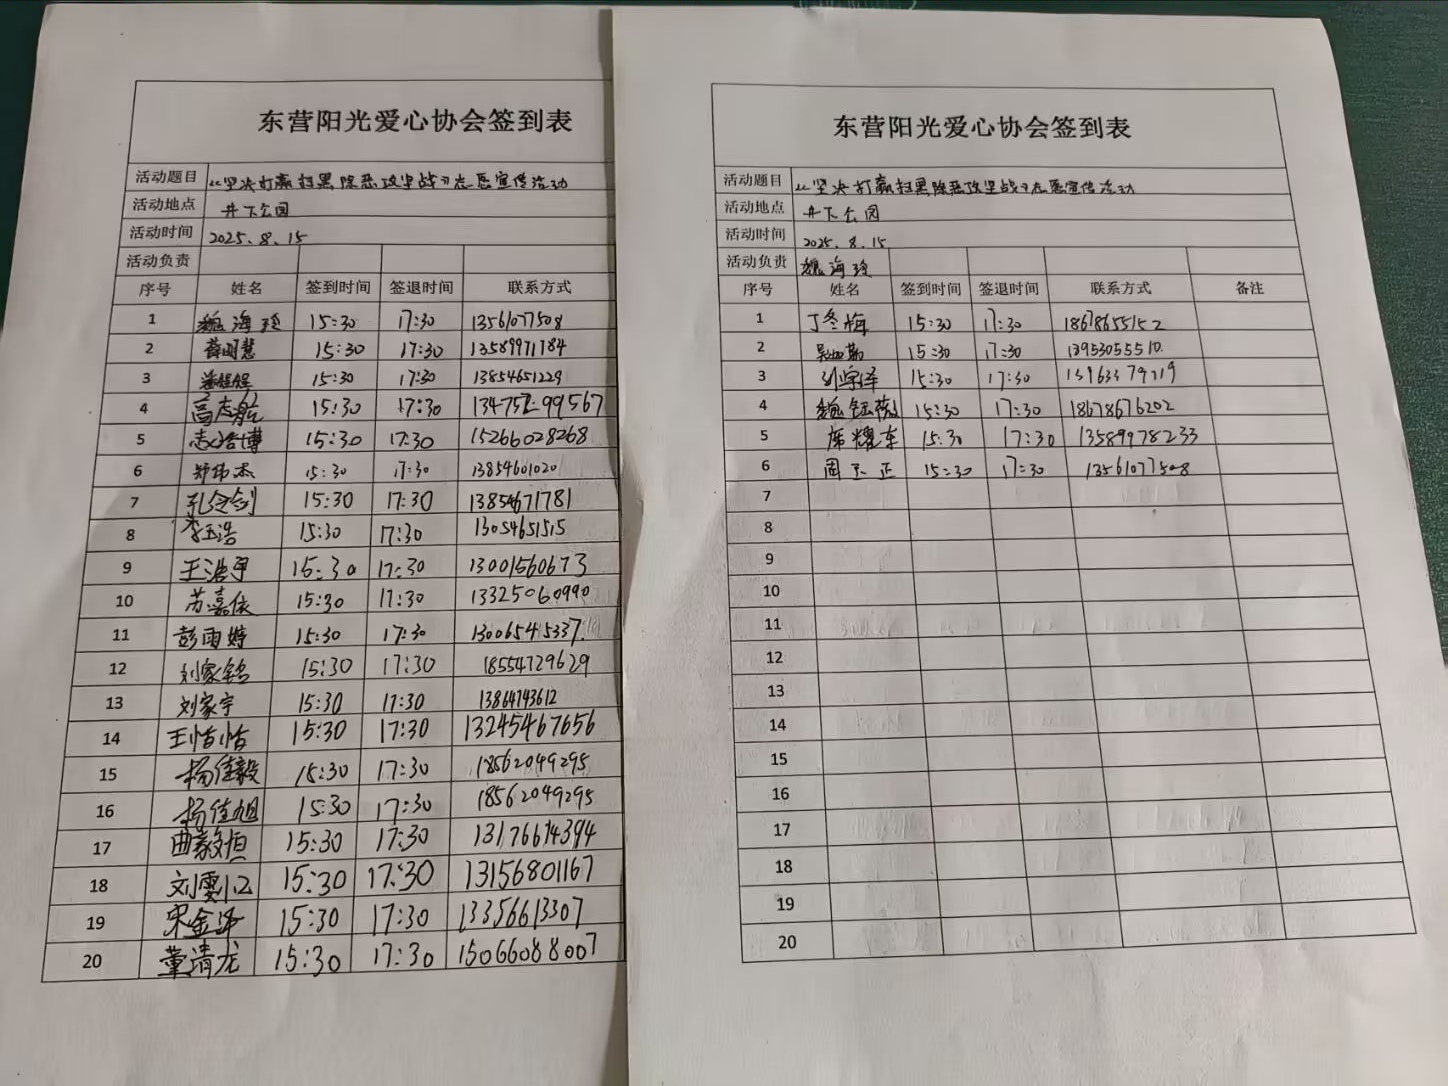 东营阳光爱心协会签到表
活动题目 《坚决打赢扫黑除恶攻坚战》志愿宣传活动
活动地点 井下公园
活动时间 2025.8.15
活动负责
序号 姓名 签到时间 签退时间 联系方式
1 魏海玲 15:30 17:30 13561077508
2 薛明慧 15:30 17:30 13589971784
3 15:30 17:30 13854651229
4 高志航 15:30 17:30 99567
5 15:30 17:30 15266028268
6 郑伟杰 15:30 17:30 13854601020
7 孔令剑 15:30 17:30 13854671781
8 李玉浩 15:30 17:30 13054651515
9 王浩宇 15:30 17:30 13001560673
10 苏嘉依 15:30 17:30 13325060990
11 彭雨婷 15:30 17:30 13006545337
12 刘家铭 15:30 17:30 18554729629
13 刘家宇 15:30 17:30 13864743612
14 王怡怡 15:30 17:30 13245467656
15 杨佳毅 15:30 17:30 18562049295
16 杨佳旭 15:30 17:30 18562049295
17 曲毅恒 15:30 17:30 13176614394
18 15:30 17:30 13156801167
19 宋金泽 15:30 17:30 13356613307
20 董清龙 15:30 17:30 15066088007
东营阳光爱心协会签到表
活动题目 《坚决打赢扫黑除恶攻坚战》志愿宣传活动
活动地点 井下公园
活动时间 2025.8.15
活动负责 魏海玲
序号 姓名 签到时间 签退时间 联系方式 备注
1 丁冬梅 15:30 17:30 18678655152
2 15:30 17:30 13953055510
3 刘宇泽 15:30 17:30
4 魏钰薇 15:30 17:30 18678676202
5 席耀东 15:30 17:30 13589978233
6 周玉正 15:30 17:30 13561077508
7
8
9
10
11
12
13
14
15
16
17
18
19
20